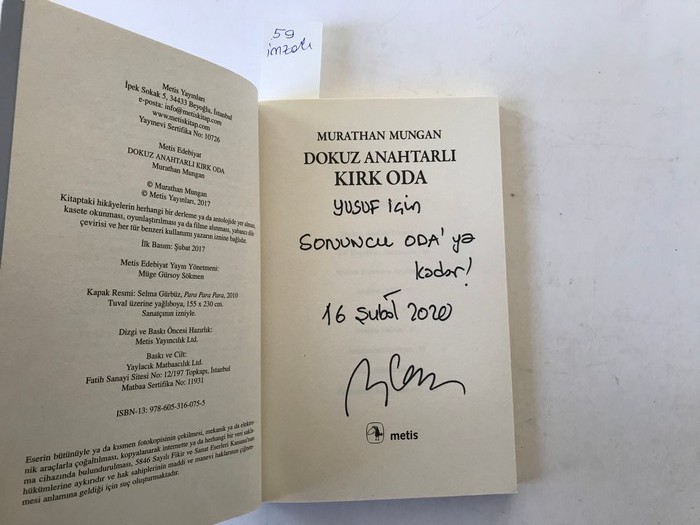 59
imzalı
Metis Yayınları
İpek Sokak 5, 34433 Beyoğlu, İstanbul
e-posta: info@metiskitap.com
www.metiskitap.com
Yayınevi Sertifika No: 10726
Metis Edebiyat
DOKUZ ANAHTARLI KIRK ODA
Murathan Mungan
© Murathan Mungan
© Metis Yayınları, 2017
Kitaptaki hikâyelerin herhangi bir derleme ya da antolojide yer alması,
kasete okunması, oyunlaştırılması ya da filme alınması, yabancı dile
çevirisi ve her tür benzeri kullanımı yazarın iznine bağlıdır.
İlk Basım: Şubat 2017
Metis Edebiyat Yayın Yönetmeni:
Müge Gürsoy Sökmen
Kapak Resmi: Selma Gürbüz, Para Para Para, 2010
Tuval üzerine yağlıboya, 155 x 230 cm.
Sanatçının izniyle.
Dizgi ve Baskı Öncesi Hazırlık:
Metis Yayıncılık Ltd.
Baskı ve Cilt:
Yaylacık Matbaacılık Ltd.
Fatih Sanayi Sitesi No: 12/197 Topkapı, İstanbul
Matbaa Sertifika No: 11931
ISBN-13: 978-605-316-075-5
Eserin bütünüyle ya da kısmen fotokopisinin çekilmesi, mekanik ya da elektro-
nik araçlarla çoğaltılması, kopyalanarak internette ya da herhangi bir veri sakla-
ma cihazında bulundurulması, 5846 Sayılı Fikir ve Sanat Eserleri Kanunu'nun
hükümlerine aykırıdır ve hak sahiplerinin maddi ve manevi haklarının çiğnen-
mesi anlamına geldiği için suç oluşturmaktadır.
MURATHAN MUNGAN
DOKUZ ANAHTARLI
KIRK ODA
YUSUF için
SONUNCU ODA'ya
kadar!
16 Şubat 2020
metis